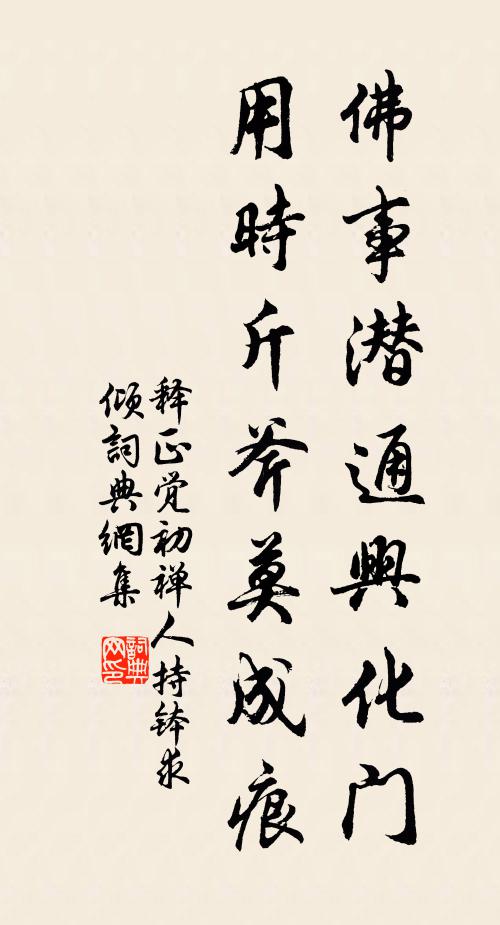 佛事潜通興化门
用時斤斧莫成痕
释正觉初禅人持钵求
倾詞典網集
詞典网印